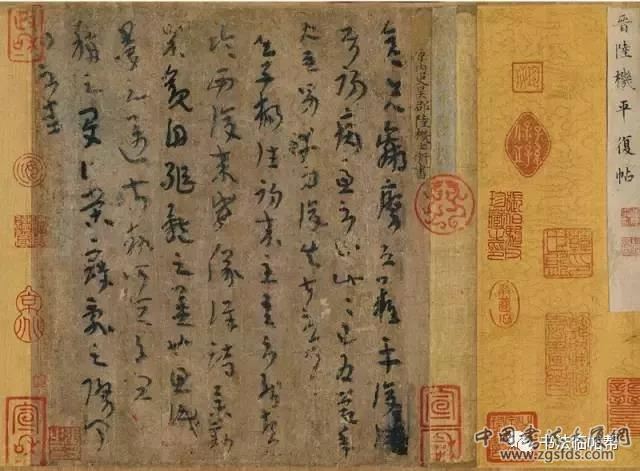 晉陸機平復帖
內史吳郡陸機士衡書
彥先羸瘵恐難平復往屬
初病慮不止此此已為慶承
使唯男幸為復失前憂耳
吳子楊往初來主吾不能盡
臨西復來威儀詳跱舉動
成觀自軀體之美也思識
量之邁前執所恆有宜
稱之夏伯榮寇亂之際聞
問不悉
书法临帖帮
www.zgsfds.com